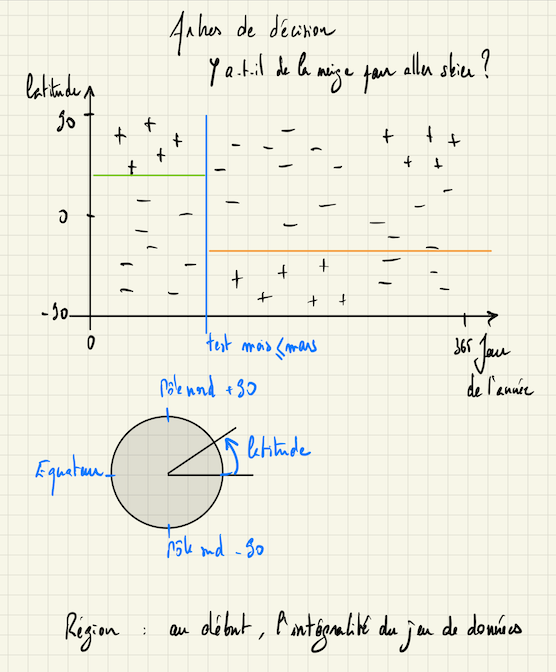 Arbres de décision
Y a-t-il de la neige pour aller skier ?
latitude
90
0
-90
0
test mois ⩽ mars
365
Jour
de l'année
Pôle nord +90
latitude
Equateur
Pôle sud -90
Région : au début, l'intégralité du jeu de données